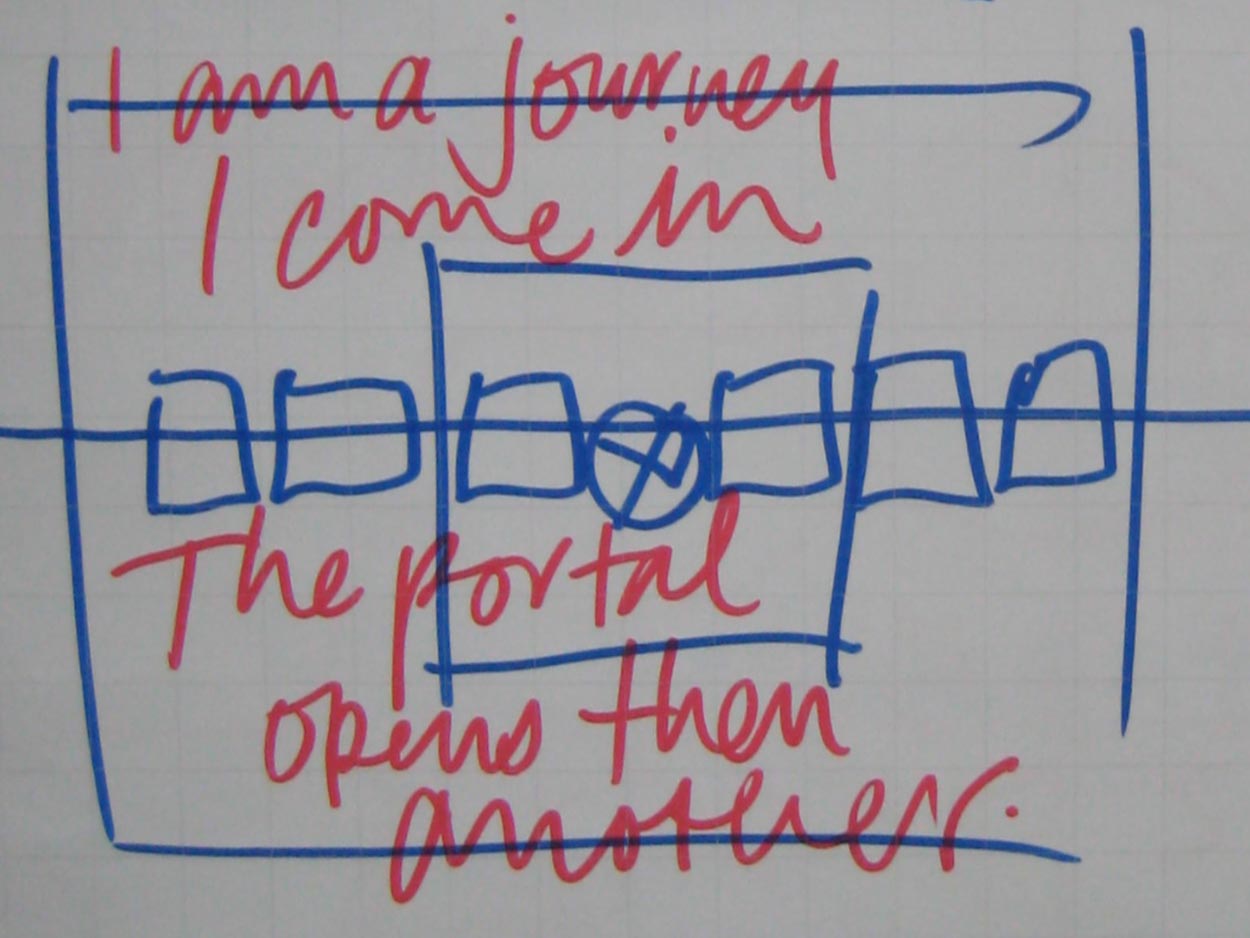 I am a journey
I come in
The portal
opens then
another.